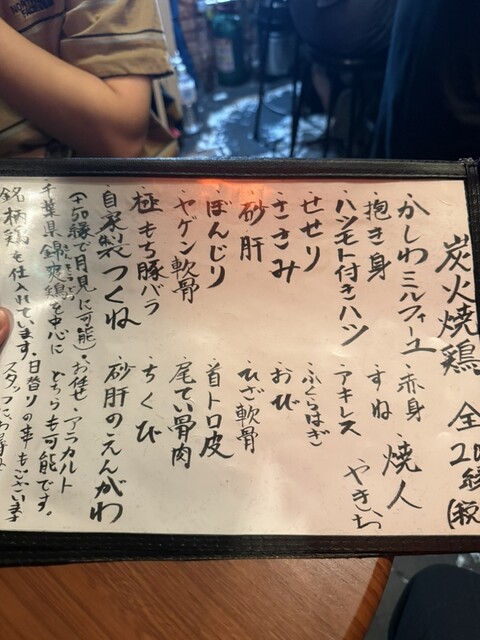 炭火焼鶏 全20
・かしわミルフィーユ ・赤身 焼人
・抱き身 ・すね やきいち
・ハツモト付きハツ ・アキレス
・せせり ・ふくらはぎ
・ささみ ・おび
・砂肝 ・ひざ軟骨
・ぼんじり ・首トロ皮
・ヤゲン軟骨 ・尾てい骨肉
・極もち豚バラ ・ちくび
・自家製つくね ・砂肝のえんがわ
(+50縁で月見に可能) ・お任せ ・アラカルト
・千葉県錦爽鶏を中心に どちらも可能です。
銘柄鶏も仕入れています。 ・日替りの串もございます
スタッフに